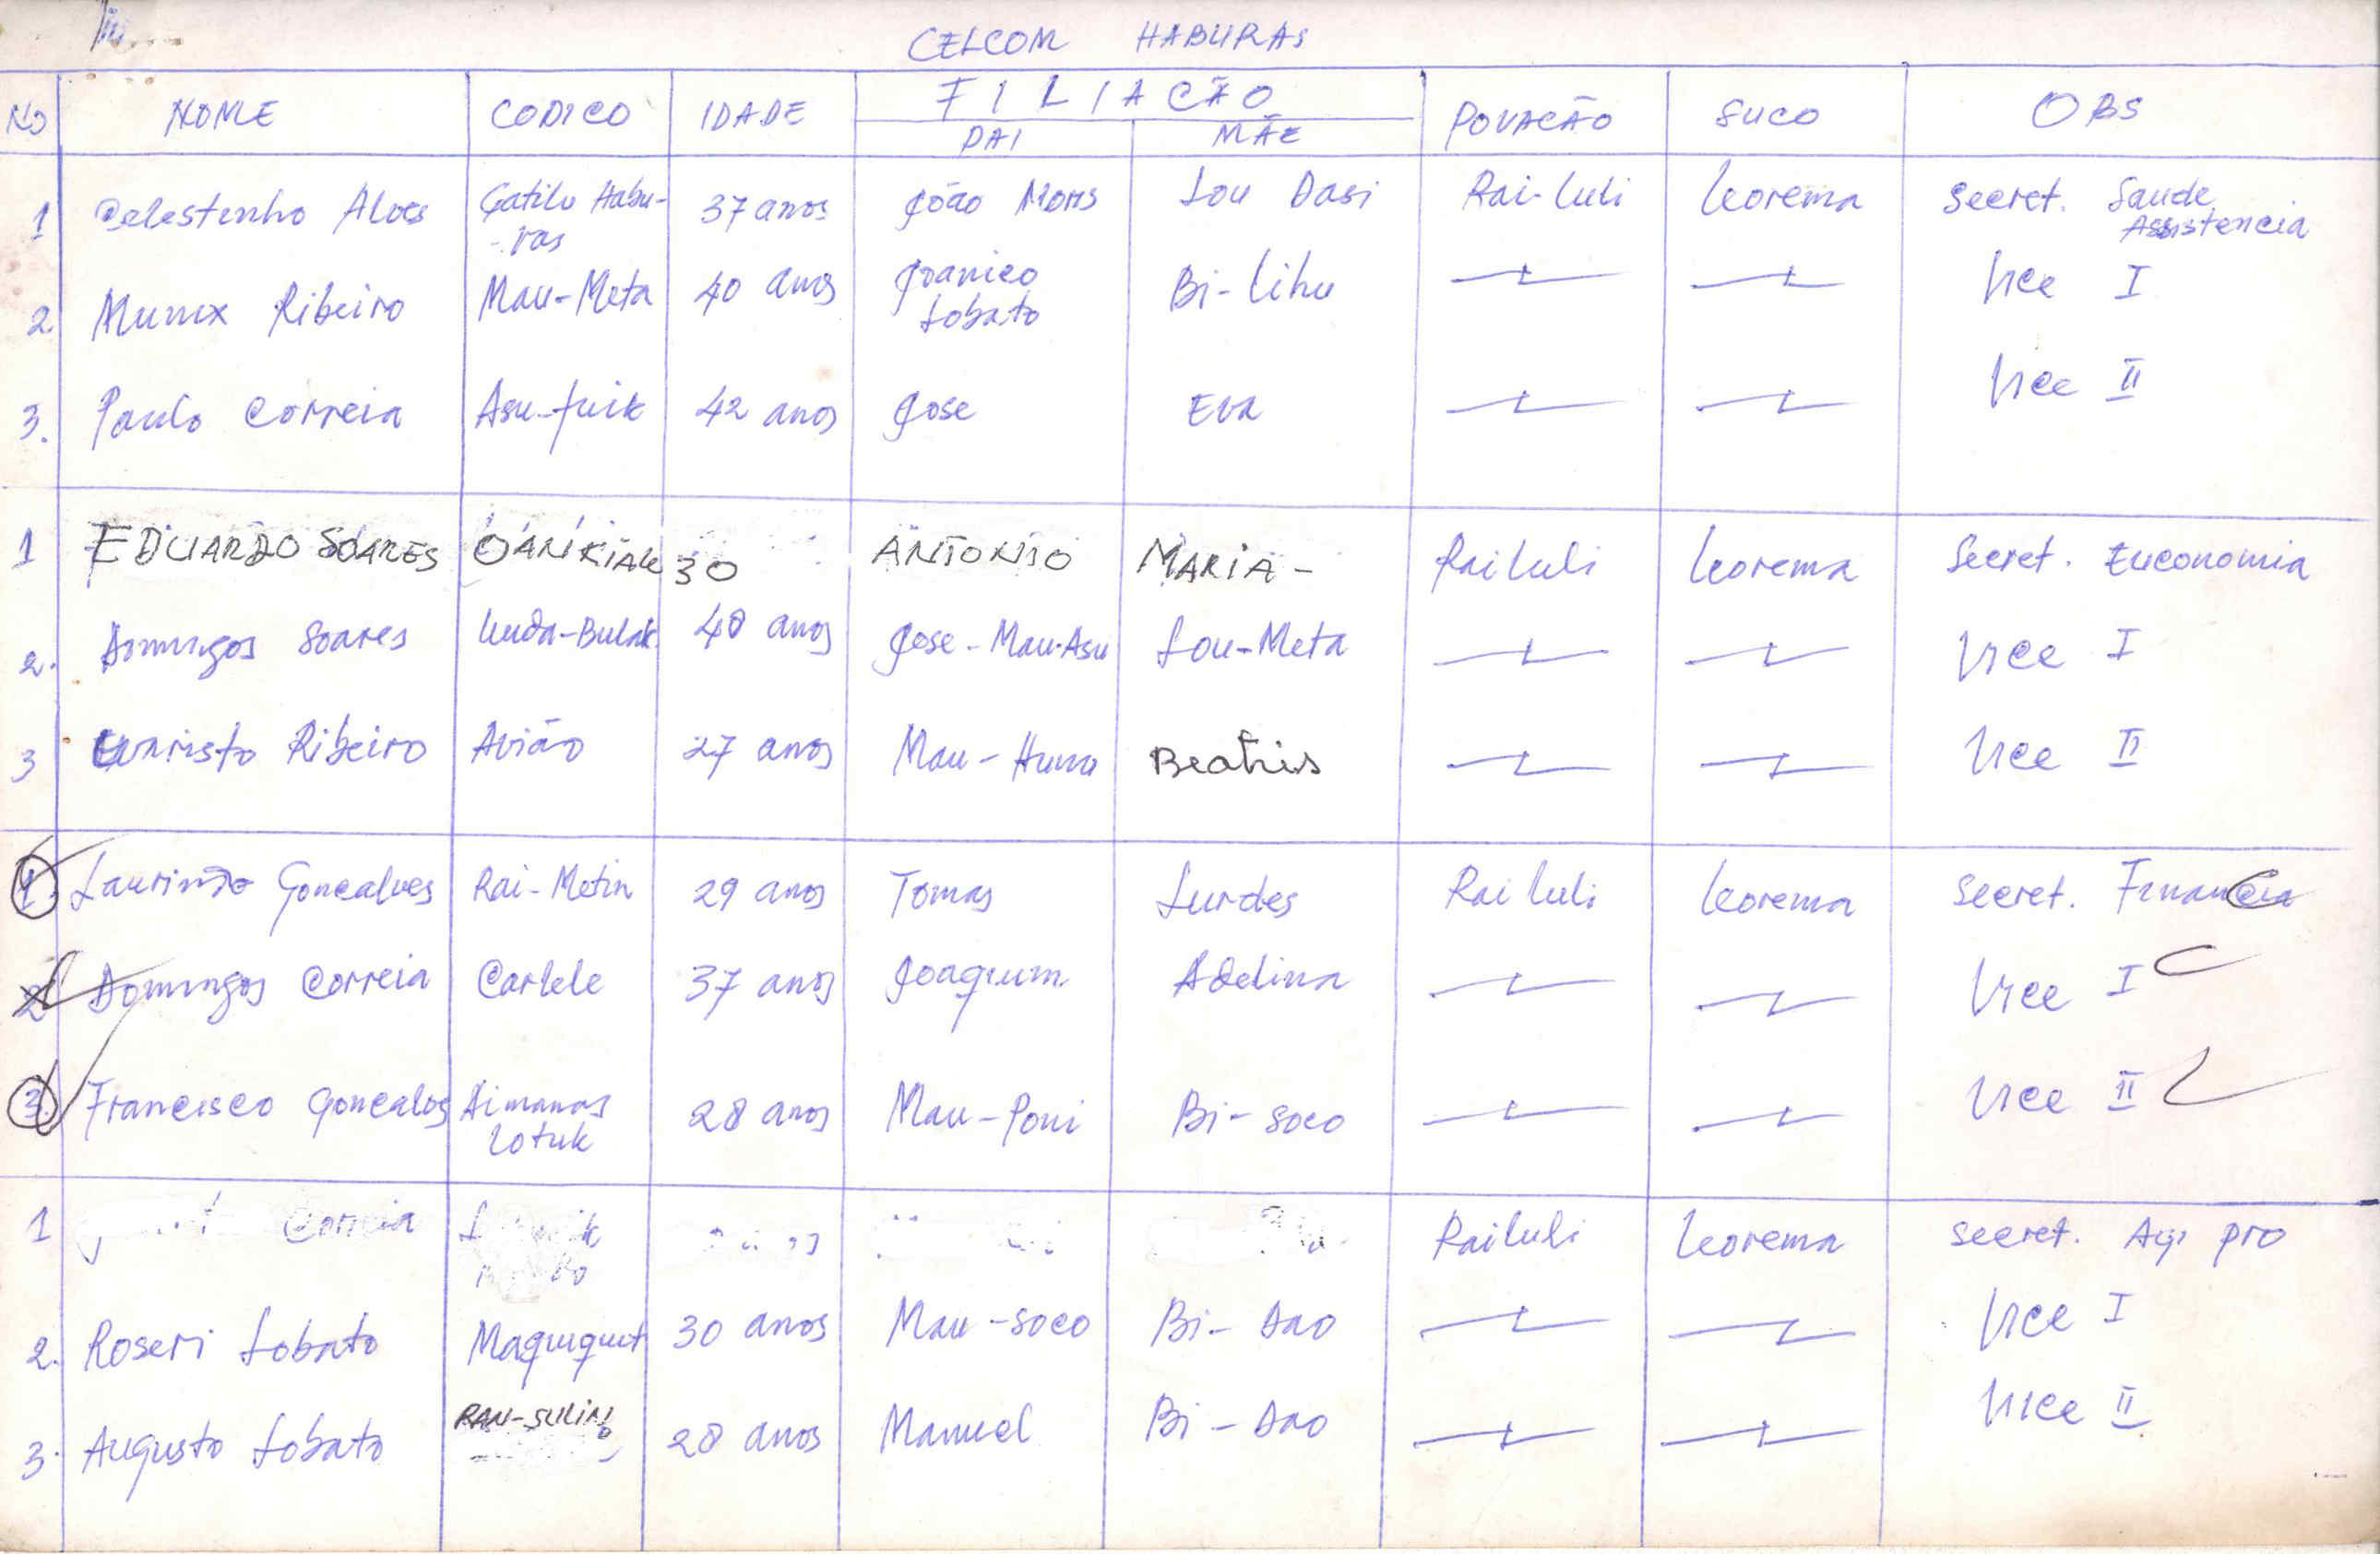 CELCOM HABURAS
NO NOME CODICO IDADE FILIACÃO POVACÃO SUCO OBS
PAI MÃE
1 Celestinho Alves Gatilu Habu- 37 anos João Mons Lou Dasi Rai-luli leorema Secret. Saude
-ras Assistencia
2. Munix Ribeiro Mau-Meta 40 anos Joanico Bi-lihu Vice I
Lobato
3. Paulo Correia Asu-fuik 42 anos Jose Eva Vice II
1 EDUARDO SOARES 30 ANTONIO MARIA - Railuli leorema Secret. Euconomia
2. Domingos Soares luda-Bulak 48 anos Jose-Mau-Asu Lou-Meta Vice I
3 Evaristo Ribeiro Avião 27 anos Mau-Huno Beatris Vice II
1. Laurindo Goncalves Rai-Metin 29 anos Tomas Lurdes Railuli leorema Secret. Financia
2 Domingos Correia Carlele 37 anos Joaquim Adelina Vice I
3. Francisco Goncalos Aimanas 28 anos Mau-Poni Bi-soco Vice II
lotuk
1 Correia Railuli leorema Secret. Agi pro
2. Roseri Lobato Maquiquit 30 anos Mau-soco Bi-Dao Vice I
3. Augusto Lobato RAN-SULIN 28 anos Manuel Bi-Dao Vice II